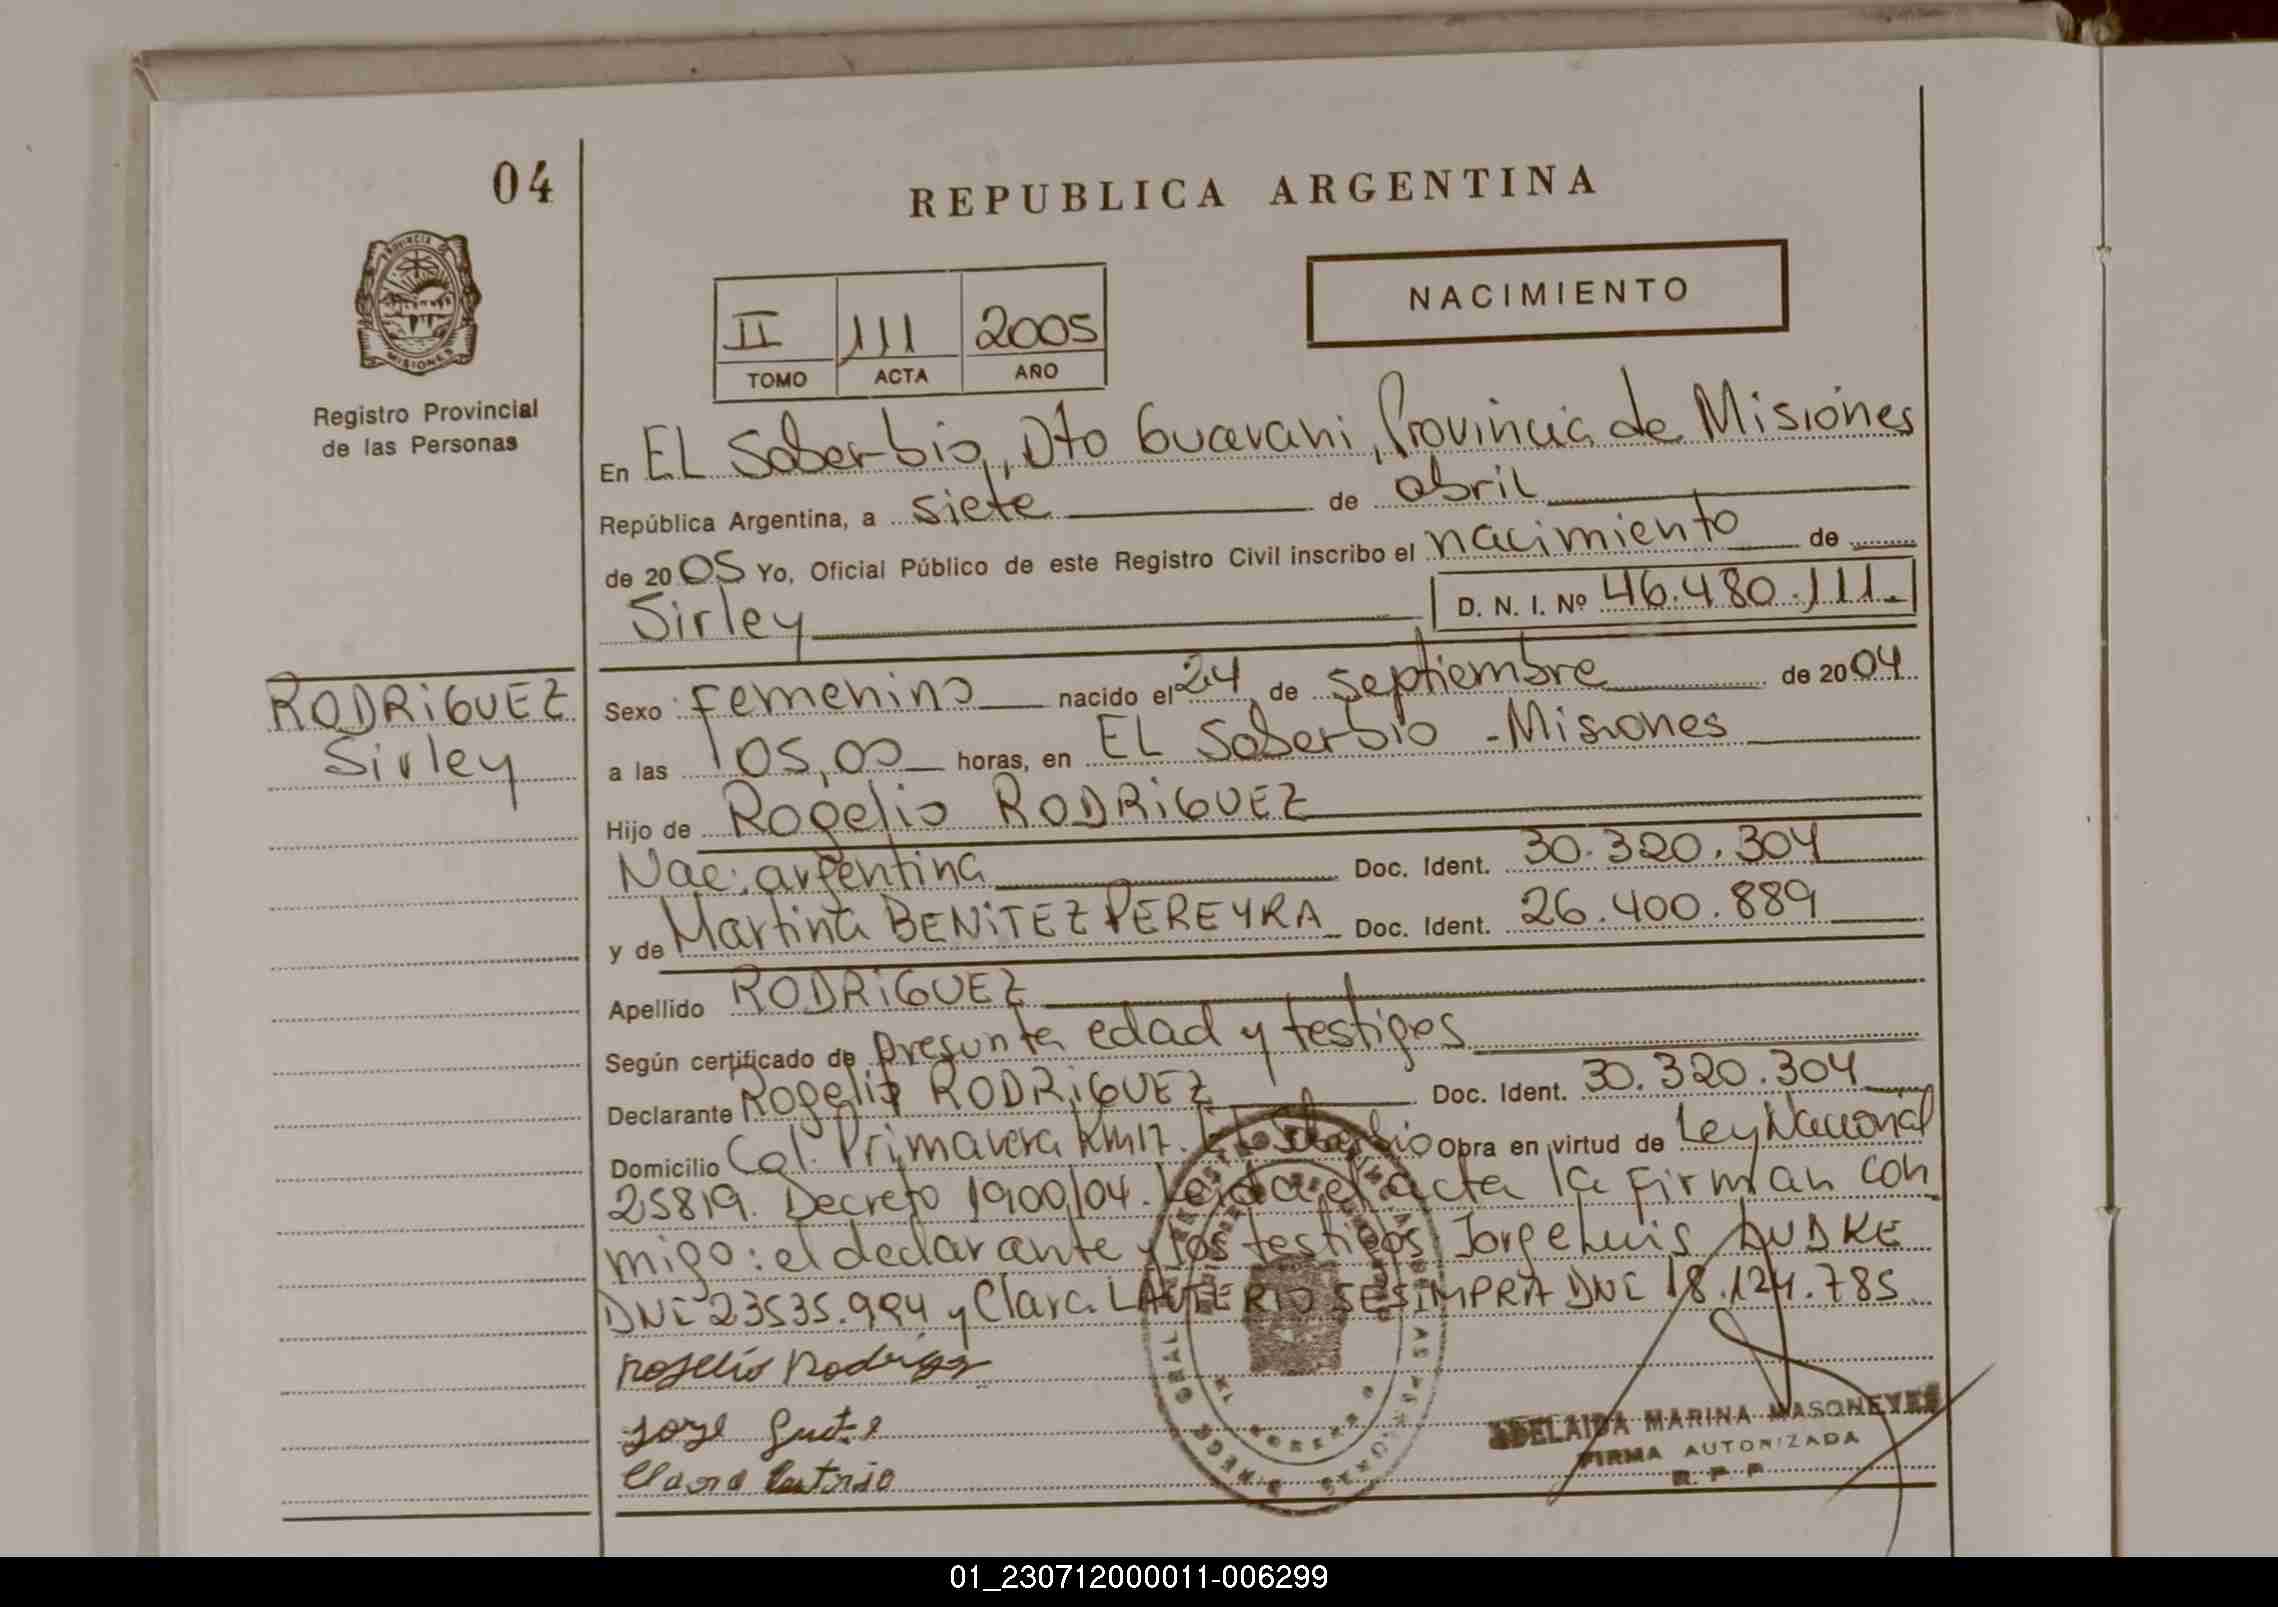 04
REPUBLICA ARGENTINA
PROVINCIA DE
MISIONES
Registro Provincial
de las Personas
NACIMIENTO
II 111 2005
TOMO ACTA AÑO
En EL Soberbio, Dto Guarani, Provincia de Misiones
República Argentina, a siete de abril
de 2005 Yo, Oficial Público de este Registro Civil inscribo el nacimiento de
Sirley D. N. I. Nº 46.480.111.
RODRiGUEZ
Sirley
Sexo femenino nacido el 24 de septiembre de 2004
a las 05,00 horas, en EL Soberbio - Misiones
Hijo de Rogelio RODRiGUEZ
Nac. argentina Doc. Ident. 30.320.304
y de Martina BENiTEZ PEREYRA Doc. Ident. 26.400.889
Apellido RODRiGUEZ
Según certificado de presunta edad y testigos
Declarante Rogelio RODRiGUEZ Doc. Ident. 30.320.304
Domicilio Col. Primavera Km 17. EL Soberbio Obra en virtud de Ley Nacional
25819. Decreto 1900/04. Leida el acta la firman con
migo: el declarante y los testigos Jorge Luis LUDKE
DNI 23535.994 y Clara LAUTERIO SESIMPRA DNI 18.124.785
Rogelio Rodrigz
Jorge
Clara
ADELAIDA MARINA MASONEVES
FIRMA AUTORIZADA
R. P. P.
01_230712000011-006299